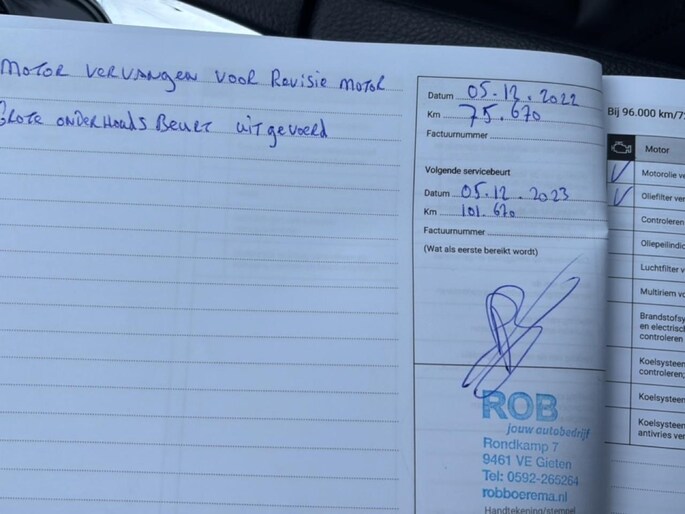 MOTOR VERVANGEN VOOR Revisie MOTOR
Grote ONDERHOUDS Beurt uitgevoerd
Datum 05.12.2022
Km 75.670
Factuurnummer
Volgende servicebeurt
Datum 05.12.2023
Km 101.670
Factuurnummer
(Wat als eerste bereikt wordt)
ROB
jouw autobedrijf
Rondkamp 7
9461 VE Gieten
Tel: 0592-265264
robboerema.nl
Handtekening/stempel
Bij 96.000 km/7
Motor
Motorolie ve
Oliefilter ver
Controleren
Oliepeilindic
Luchtfilter v
Multiriem vo
Brandstofsy
en electrisch
controleren
Koelsysteem
controleren;
Koelsysteem
Koelsysteem
antivries ver